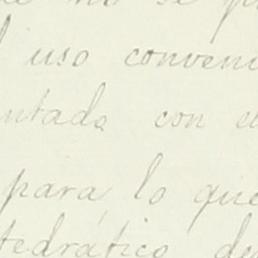 no se p
l uso conveni
ntada con el
para, lo que
tedrático de